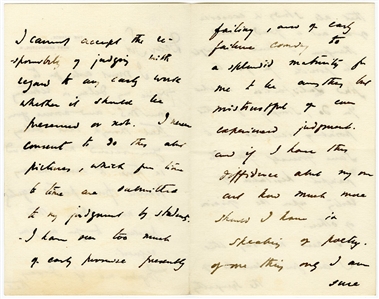 I cannot accept the re-
sponsibility of judging with
regard to any early work
whether it should be
preserved or not. I never
consent to do this about
pictures, which from time
to time are submitted
to my judgment by students.
- I have seen too much
of early promise presently
failing, and of early
failure coming to
a splendid maturity for
me to be anything but
mistrustful of even
experienced judgment.
and if I have this
diffidence about my own
art how much more
should I have in
speaking of poetry.
of one thing only I am
sure